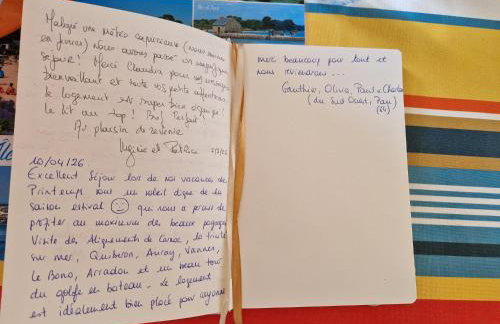 Malgré une météo capricieuse (nous sommes
en février) nous avons passé un magnifique
séjour! Merci Claudia pour vos messages
bienveillant et toute vos petite attentions
Le logement est super bien équipé!
Le lit au top! Bref Parfait!
Au plaisir de revenir
Virginie et Patrice
10/04/26
Excellent Séjour lors de nos vacances de
Printemps sous un soleil digne de la
saison estival qui nous a permis de
profiter au maximum des beaux paysages
Visite des Alignements de Carnac, La Trinité
sur mer, Quiberon, Auray, Vannes,
Le Bono, Arradon et un beau tour
du golfe en bateau. Le logement
est idéalement bien placé pour rayonner
merci beaucoup pour tout et
nous reviendrons...
Gauthier, Olivia, Paul & Charles
(du Sud Ouest, Pau)
(64)